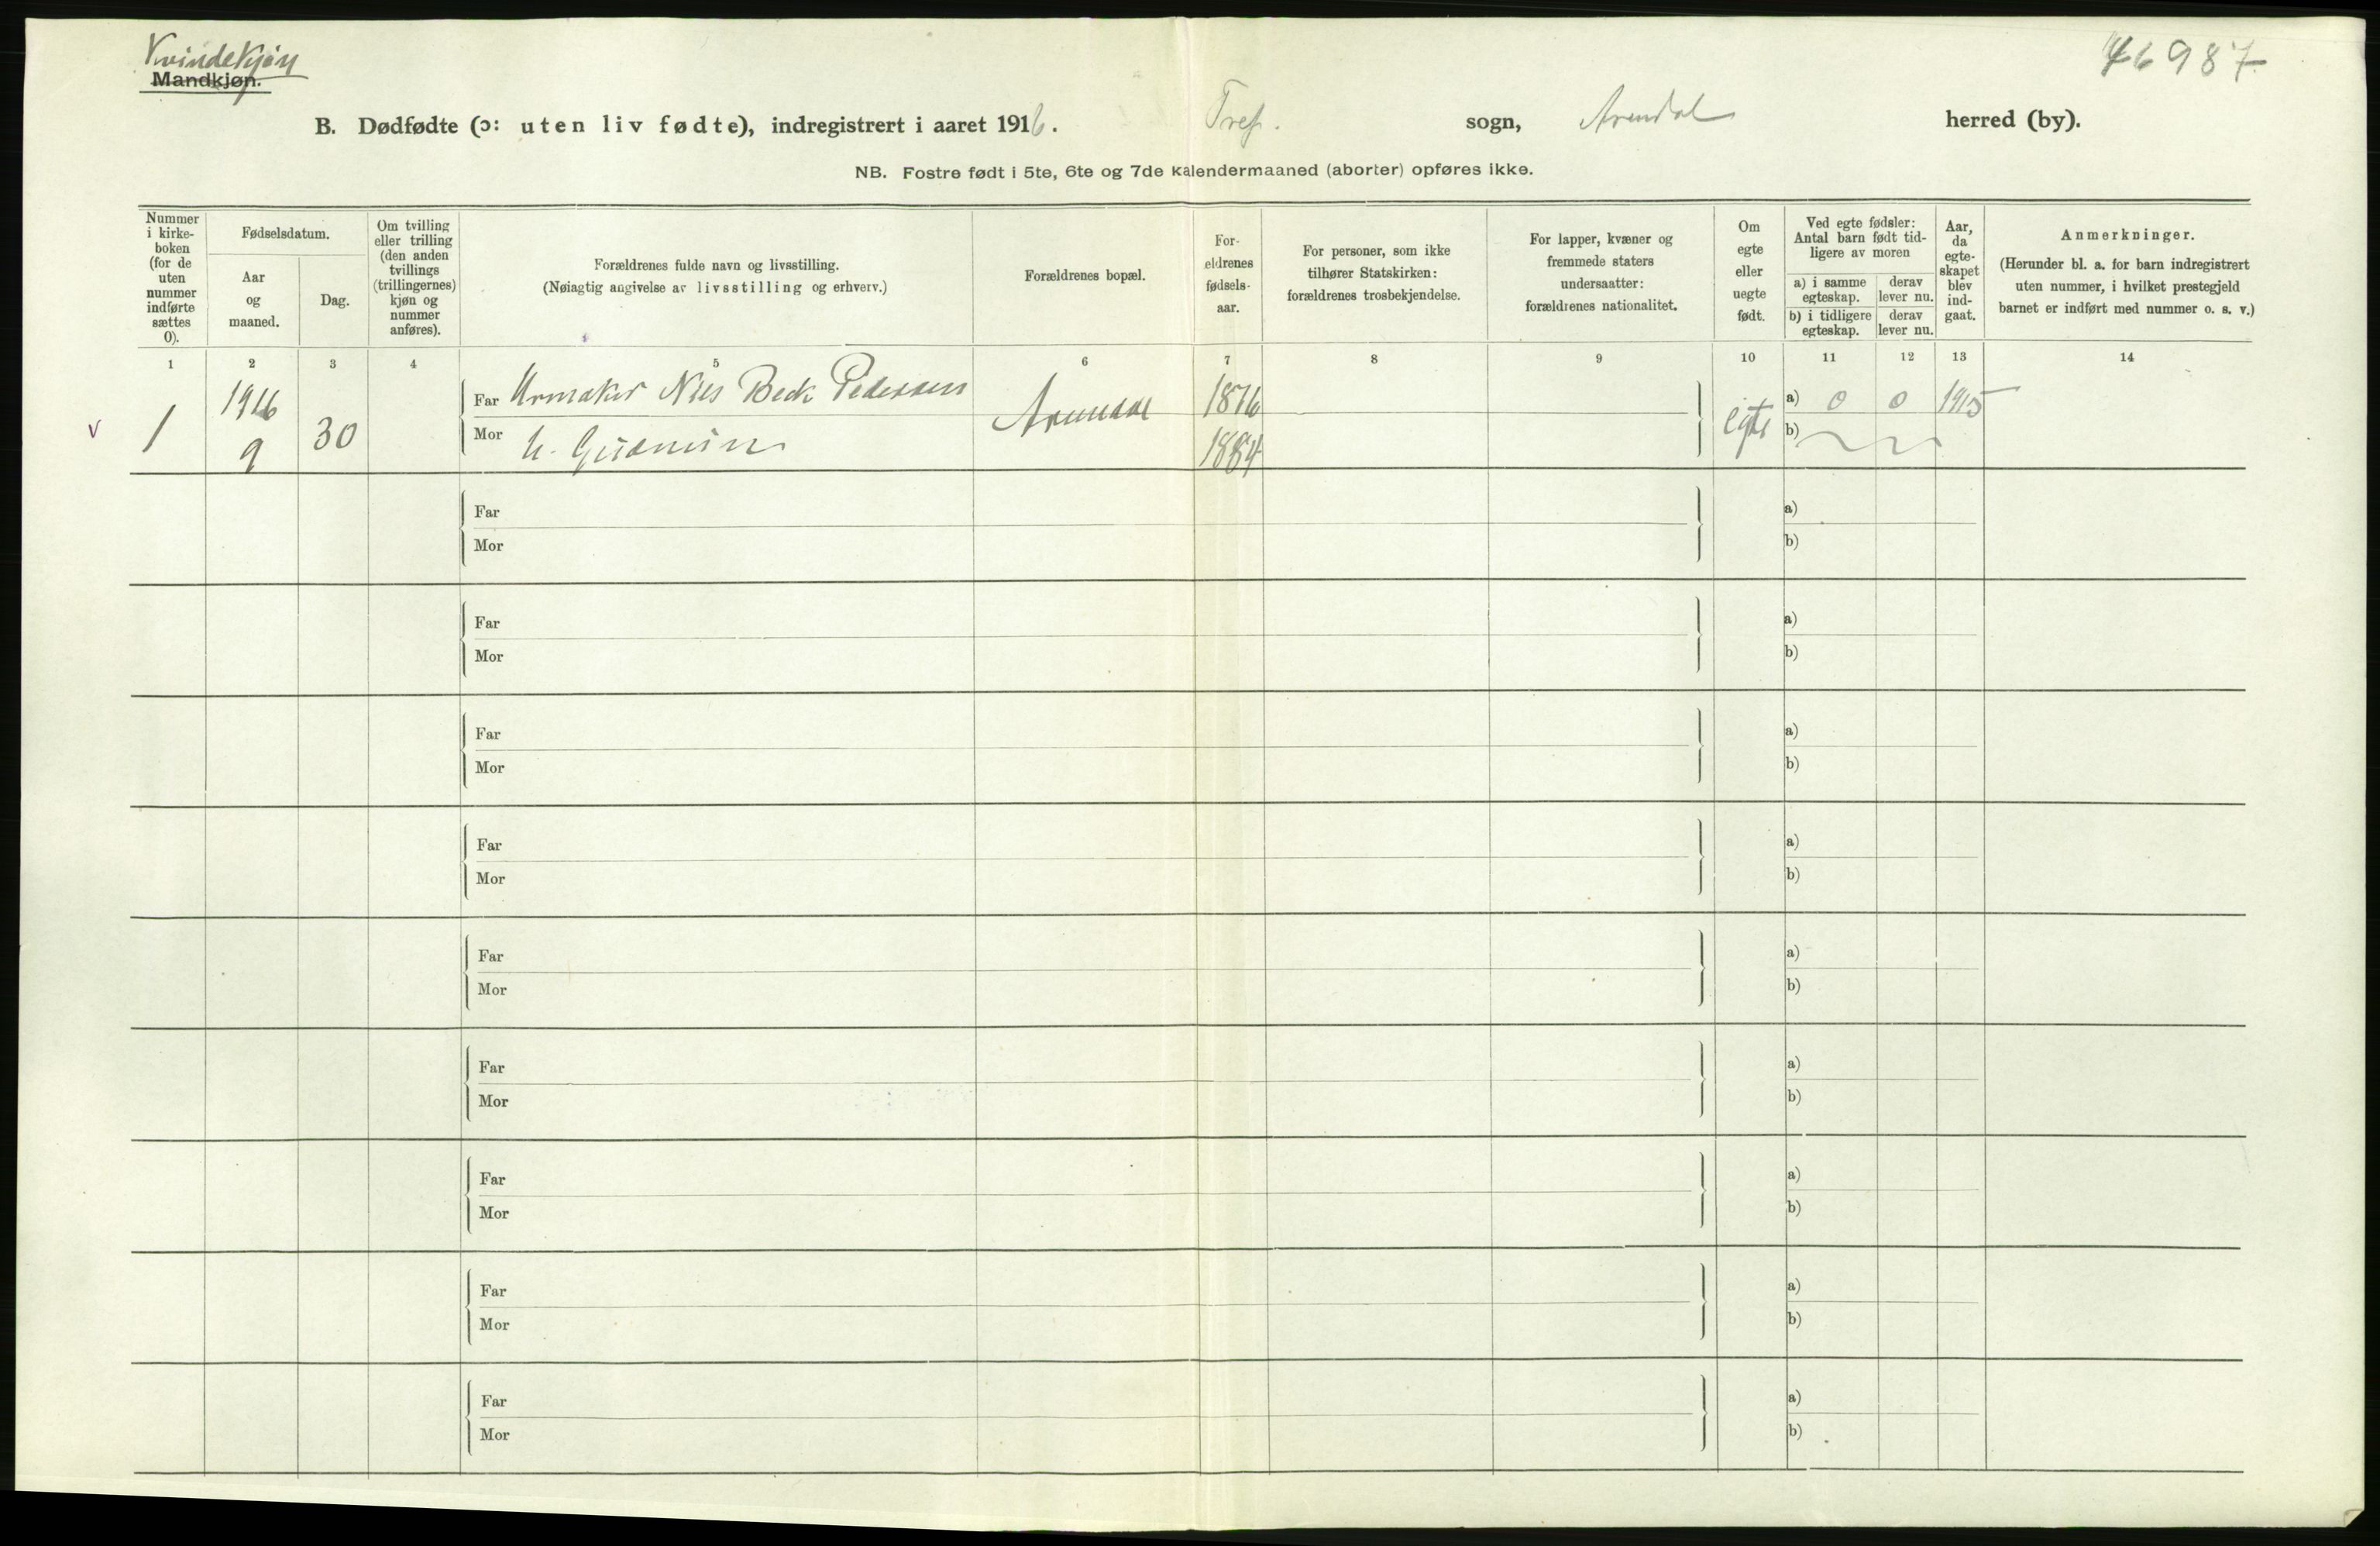 Kvindekjøn
Mandkjøn.
46987
B. Dødfødte (ɔ: uten liv fødte), indregistrert i aaret 1916. Tref. sogn, Arendal herred (by).
NB. Fostre født i 5te, 6te og 7de kalendermaaned (aborter) opføres ikke.
Nummer i kirkeboken (for de uten nummer indførte sættes 0).
Fødselsdatum.
Aar og maaned.
Dag.
Om tvilling eller trilling (den anden tvillings (trillingernes) kjøn og nummer anføres).
Forældrenes fulde navn og livsstilling.
(Nøiagtig angivelse av livsstilling og erhverv.)
Forældrenes bopæl.
Forældrenes fødselsaar.
For personer, som ikke tilhører Statskirken: forældrenes trosbekjendelse.
For lapper, kvæner og fremmede staters undersaatter: forældrenes nationalitet.
Om egte eller uegte født.
Ved egte fødsler: Antal barn født tidligere av moren
a) i samme egteskap.
derav lever nu.
b) i tidligere egteskap.
derav lever nu.
Aar, da egteskapet blev indgaat.
Anmerkninger.
(Herunder bl. a. for barn indregistrert uten nummer, i hvilket prestegjeld barnet er indført med nummer o. s. v.)
1 2 3 4 5 6 7 8 9 10 11 12 13 14
v 1 1916 9 30
Far Urmaker Nils Beck Pedersen
Mor
Arendal 1876 1884 egte
a) 0 0 1915
b)
Far a)
Mor b)
Far a)
Mor b)
Far a)
Mor b)
Far a)
Mor b)
Far a)
Mor b)
Far a)
Mor b)
Far a)
Mor b)
Far a)
Mor b)
Far a)
Mor b)